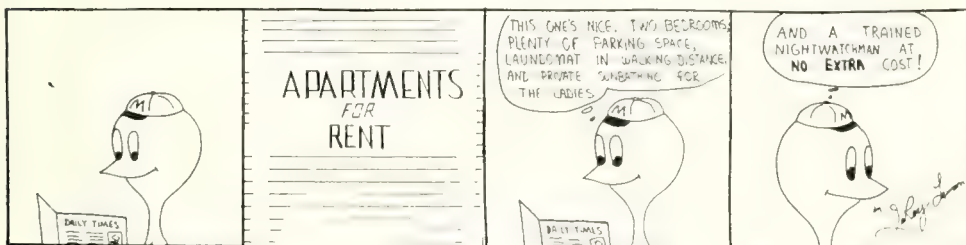 M
DAILY TIMES
APARTMENTS
FOR
RENT
THIS ONE'S NICE. TWO BEDROOMS,
PLENTY OF PARKING SPACE,
LAUNDMAT IN WALKING DISTANCE,
AND PRIVATE SUNBATHING FOR
THE LADIES
M
DAILY TIMES
AND A TRAINED
NIGHTWATCHMAN AT
NO EXTRA COST!
M